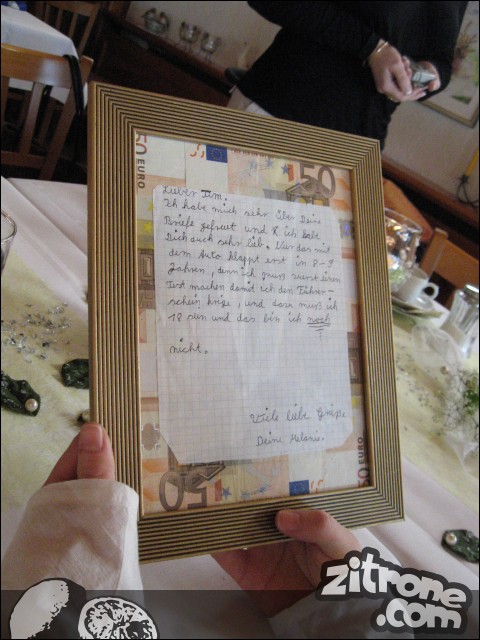 50 EURO
50
Lieber Tim.
Ich habe mich sehr über Deine
Briefe gefreut und ich habe
Dich auch sehr lieb. Nur das mit
dem Auto klappt erst in 8-9
Jahren, denn ich muss zuerst einen
Test machen damit ich den Führer-
schein krige, und dazu muss ich
18 sein und das bin ich noch
nicht.
Viele liebe Grüße
Deine Melanie.
50
50 EURO
zitrone
.com